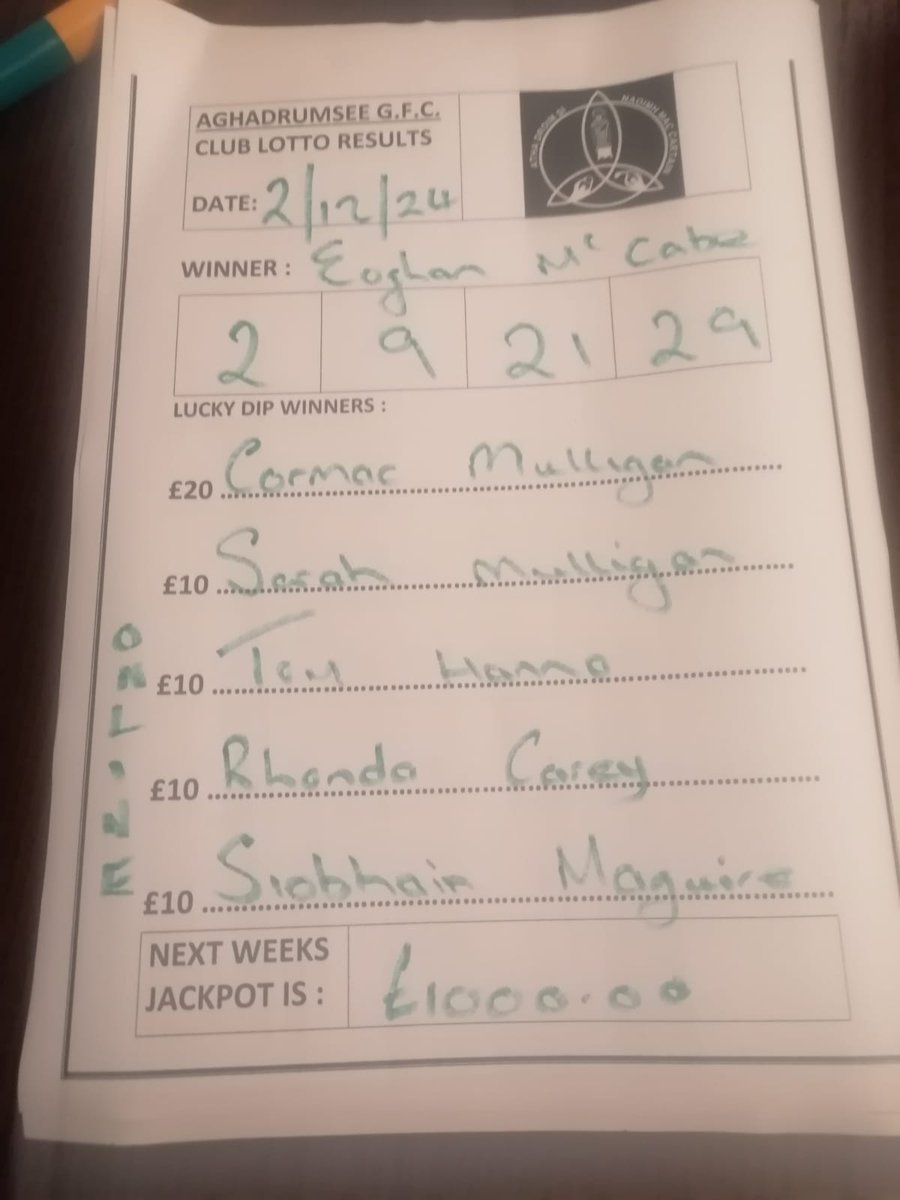 AGHADRUMSEE G.F.C.
CLUB LOTTO RESULTS
DATE: 2/12/24
WINNER : Eoghan Mc Cabe
2 9 21 29
LUCKY DIP WINNERS :
£20 Cormac Mulligan
£10 Sarah Mulligan
£10 Hanna
£10 Rhonda Carey
£10 Siobhain Maguire
ONLINE
NEXT WEEKS
JACKPOT IS : £1000.00